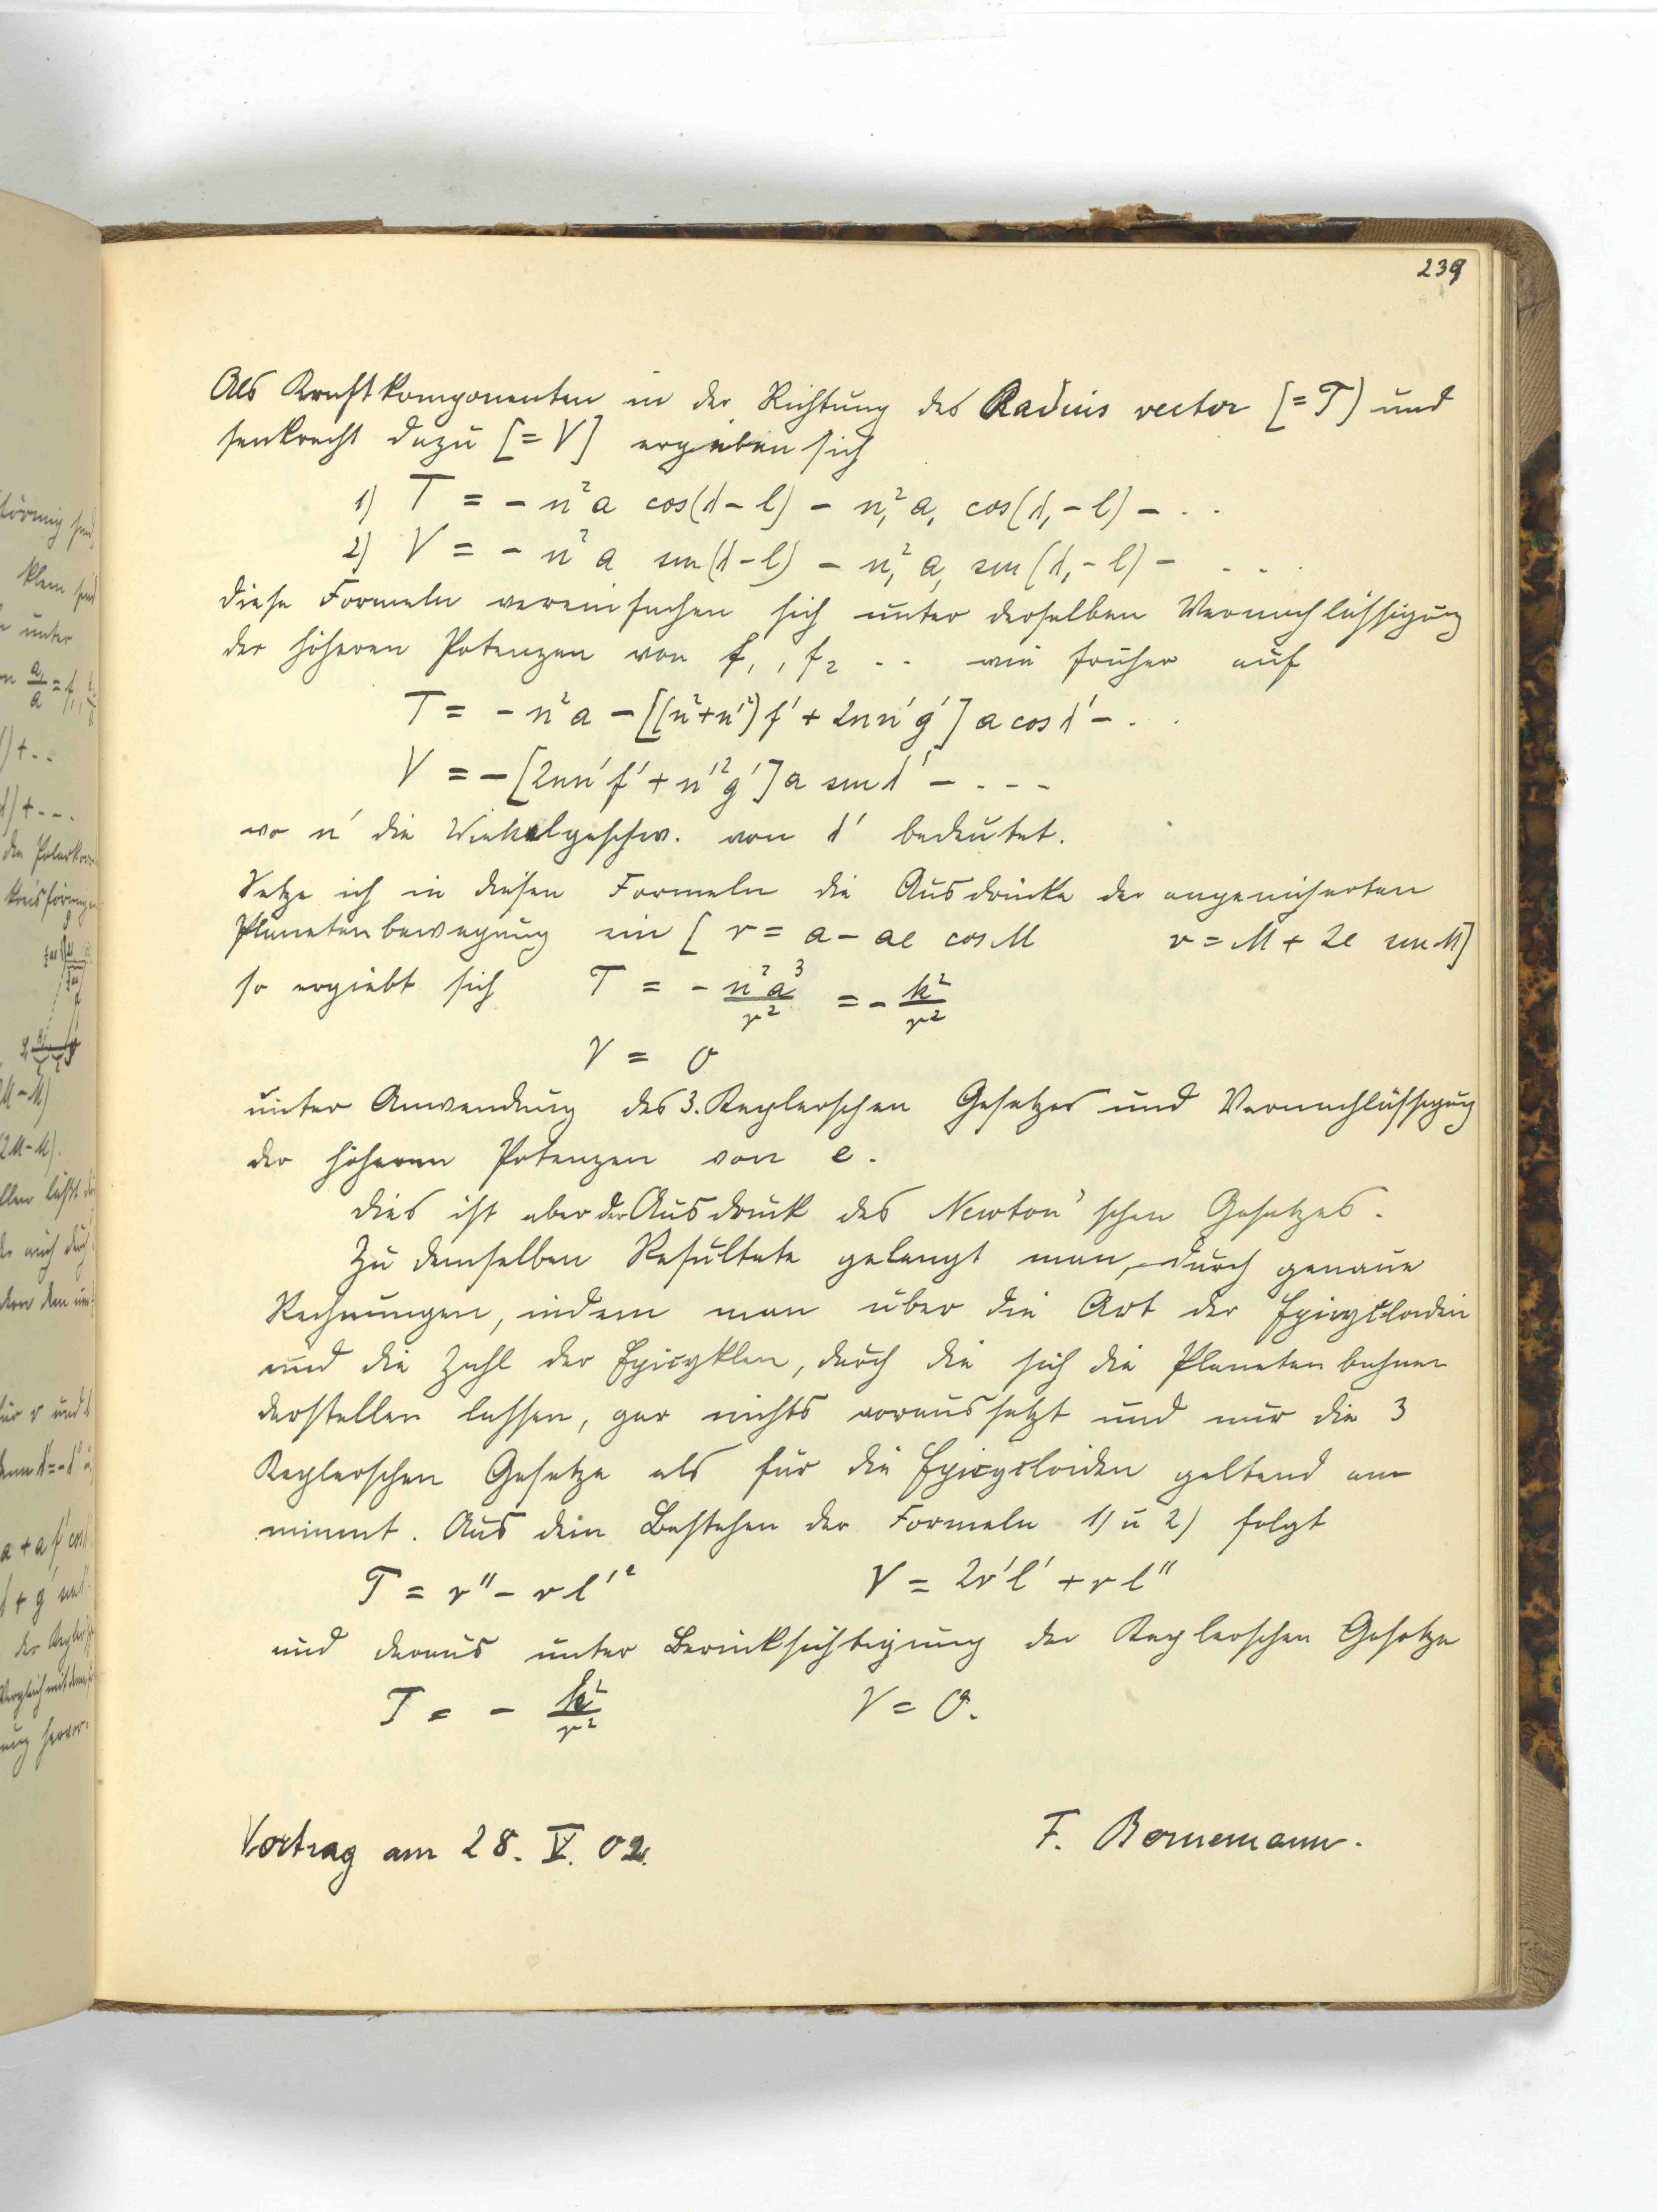 239
Als Kraftkomponenten in der Richtung des Radius vector [=T) und
senkrecht dazu [=V] ergeben sich
1) T = - n²a cos(λ-l) - n₁²a₁ cos(λ₁-l) - . .
2) V = - n²a sin(λ-l) - n₁²a₁ sin(λ₁-l) - . . .
diese Formeln vereinfachen sich unter derselben Vernachlässigung
der höheren Potenzen von f₁, f₂ .. wie früher auf
T = - n²a - [(n²+n'²)f' + 2nn'g'] a cos λ' - . .
V = - [2nn'f' + n'²g'] a sin λ' - . . .
wo n' die Winkelgeschw. von λ' bedeutet.
Setze ich in diesen Formeln die Ausdrücke der angenäherten
Planetenbewegung ein [ r = a - ae cos M v = M + 2e sin M]
so ergiebt sich T = - n²a³/r² = - k²/r²
V = 0
unter Anwendung des 3. Keplerschen Gesetzes und Vernachlässigung
der höheren Potenzen von e.
Dies ist aber der Ausdruck des Newton'schen Gesetzes.
Zu demselben Resultate gelangt man, durch genaue
Rechnungen, indem man über die Art der Epicykloiden
und die Zahl der Epicyklen, durch die sich die Planetenbahnen
darstellen lassen, gar nichts voraussetzt und nur die 3
Keplerschen Gesetze als für die Epicycloiden geltend an
nimmt. Aus dem Bestehen der Formeln 1) u 2) folgt
T = r'' - r l'² V = 2r'l' + r l''
und daraus unter Berücksichtigung der Keplerschen Gesetze
T = - k²/r² V = 0.
Vortrag am 28. V. 02. F. Bornemann.